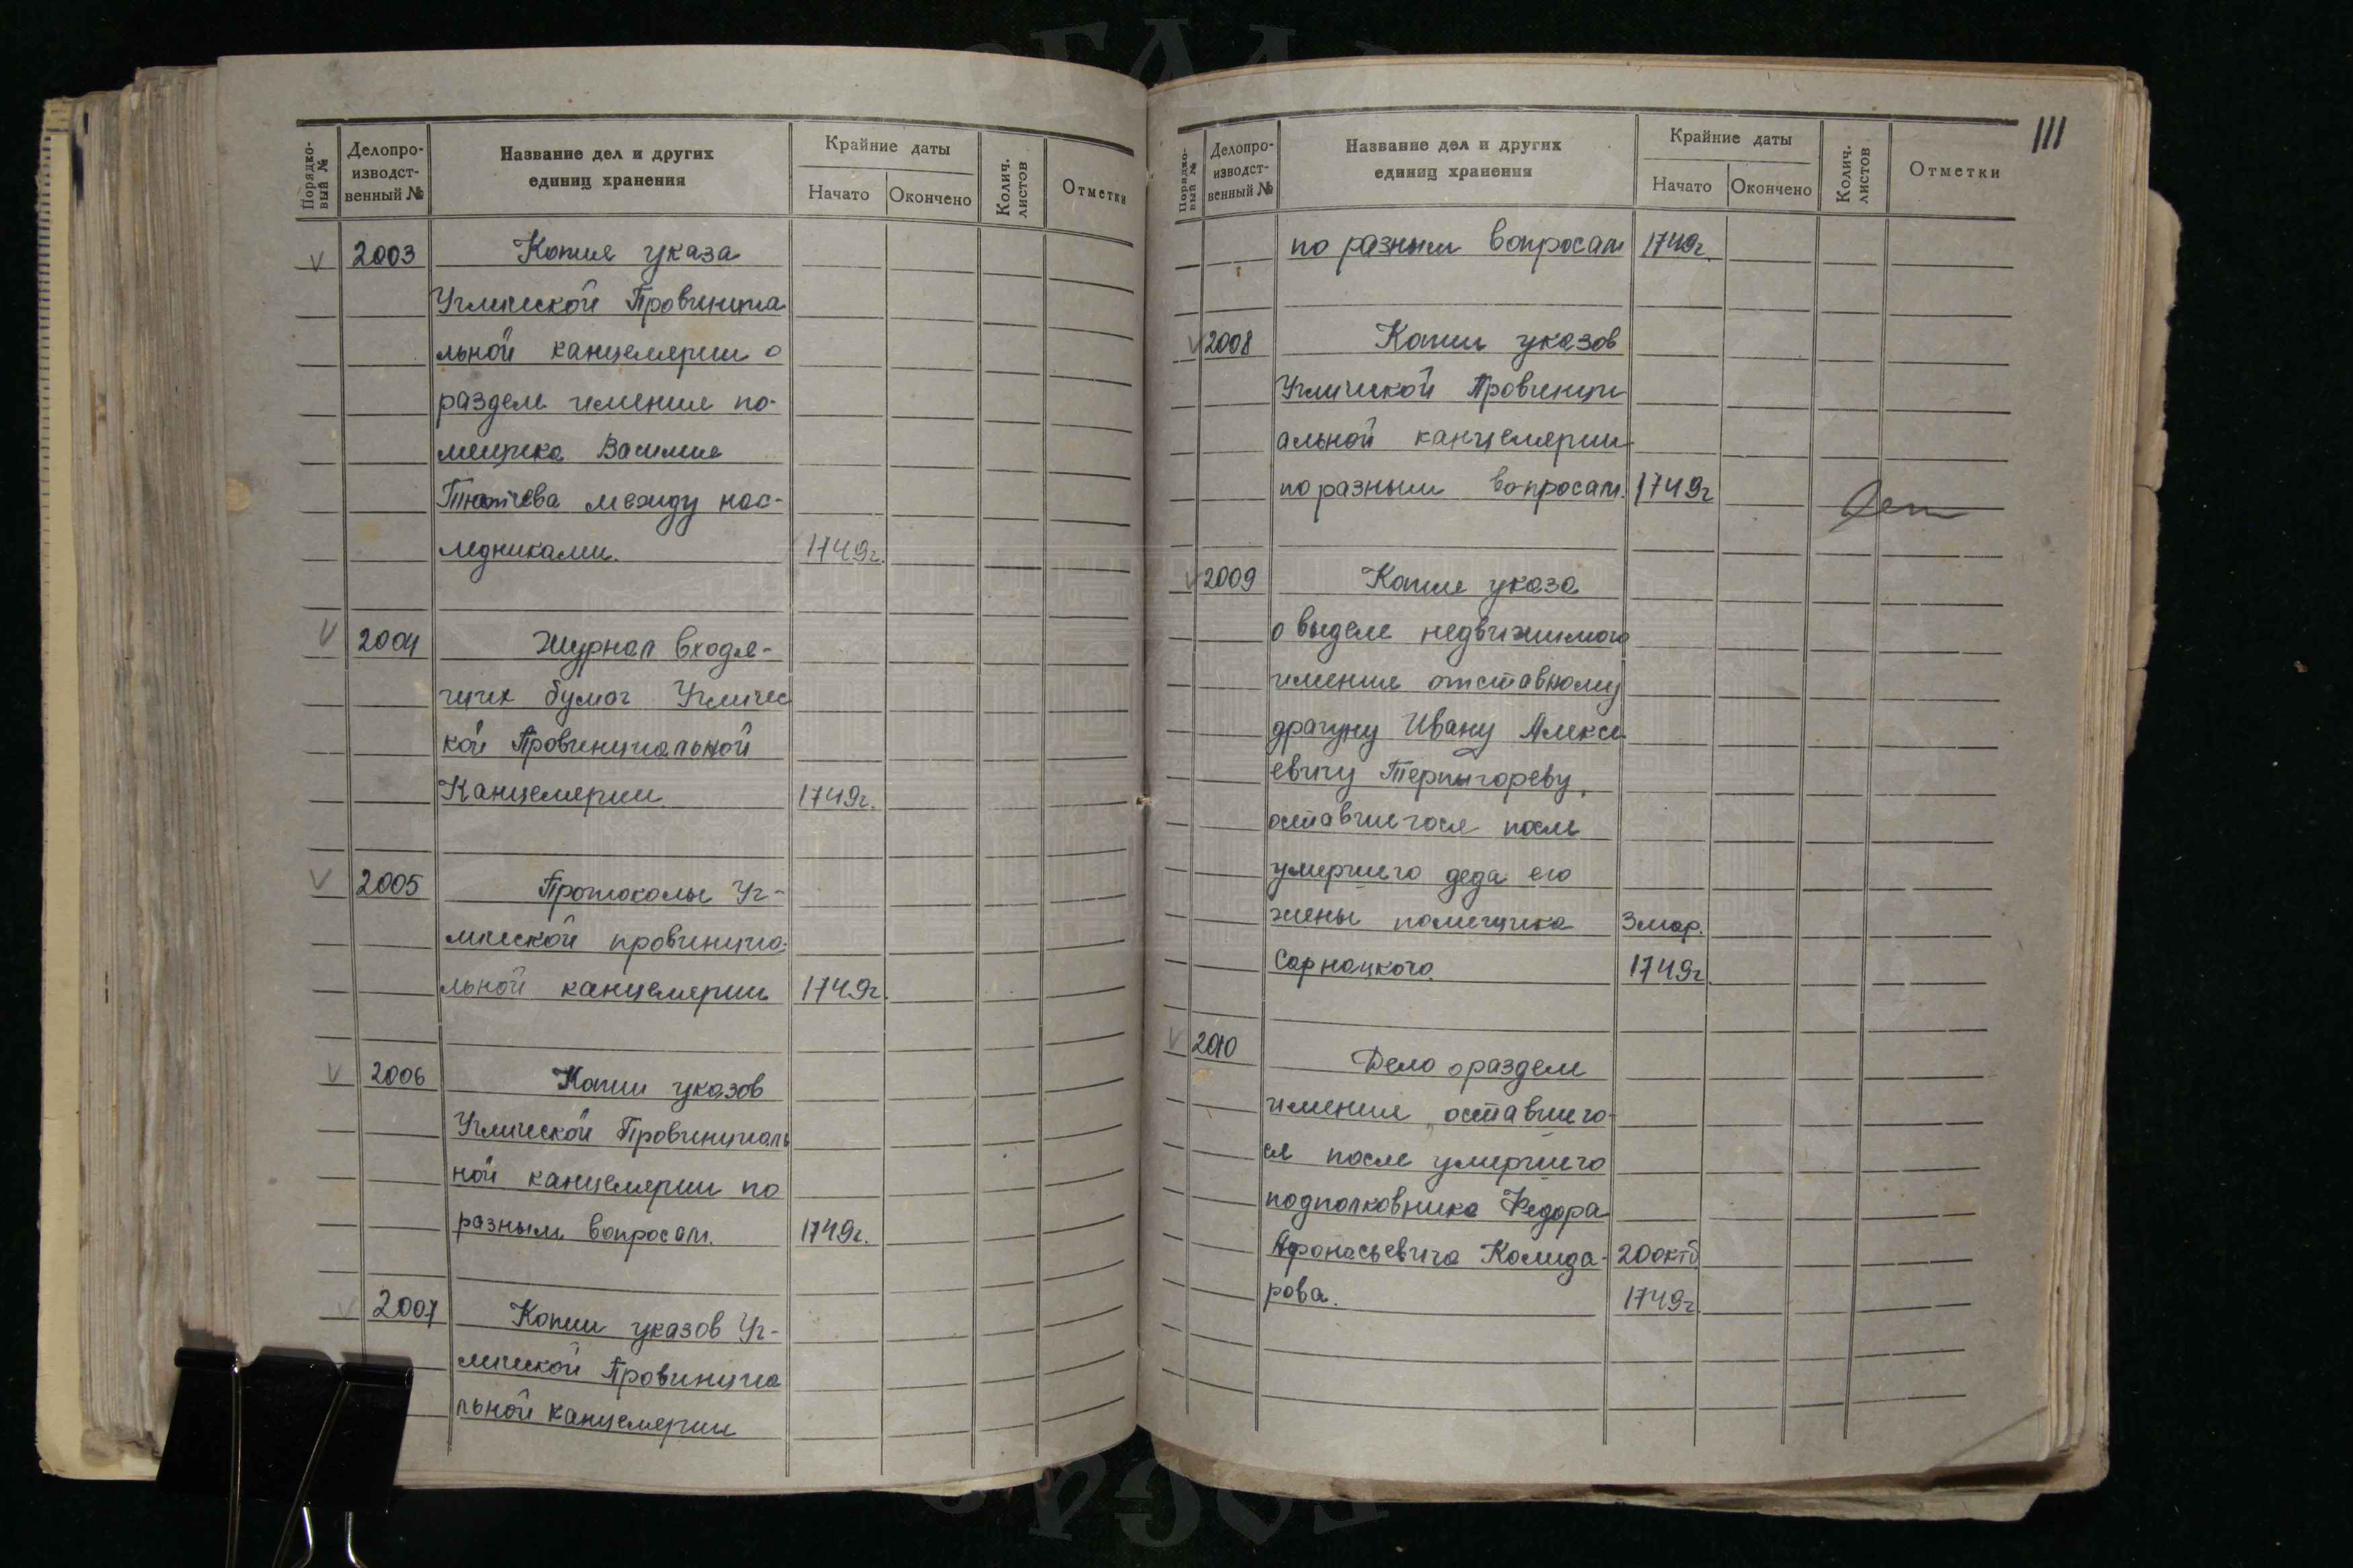 Порядко-
вый №
Делопро-
изводст-
венный №
Название дел и других
единиц хранения
Крайние даты
Начато
Окончено
Колич.
листов
Отметки
2003 Копия указа
Угличской Провинциа
льной канцелярии о
разделе имения по-
мещика Василия
Тютчева между нас-
ледниками. 1749г.
2004 Журнал входя-
щих бумаг Угличес
кой Провинциальной
Канцелярии 1749г.
2005 Протоколы Уг-
личской провинциа-
льной канцелярии 1749г.
2006 Копии указов
Угличской Провинциаль
ной канцелярии по
разным вопросам. 1749г.
2007 Копии указов Уг-
личской Провинциа
льной канцелярии
111
Порядко-
вый №
Делопро-
изводст-
венный №
Название дел и других
единиц хранения
Крайние даты
Начато
Окончено
Колич.
листов
Отметки
по разным вопросам 1749г.
2008 Копии указов
Угличской Провинци
альной канцелярии
по разным вопросам. 1749г
2009 Копия указа
о выделе недвижимого
имения отставному
драгуну Ивану Алексе
евичу Терпигореву,
оставшегося после
умершего деда его
жены помещика 3 мар.
Сарнацкого. 1749г.
2010 Дело о разделе
имения, оставшего-
ся после умершего
подполковника Федора
Афонасьевича Колида- 20 октб
рова. 1749г.